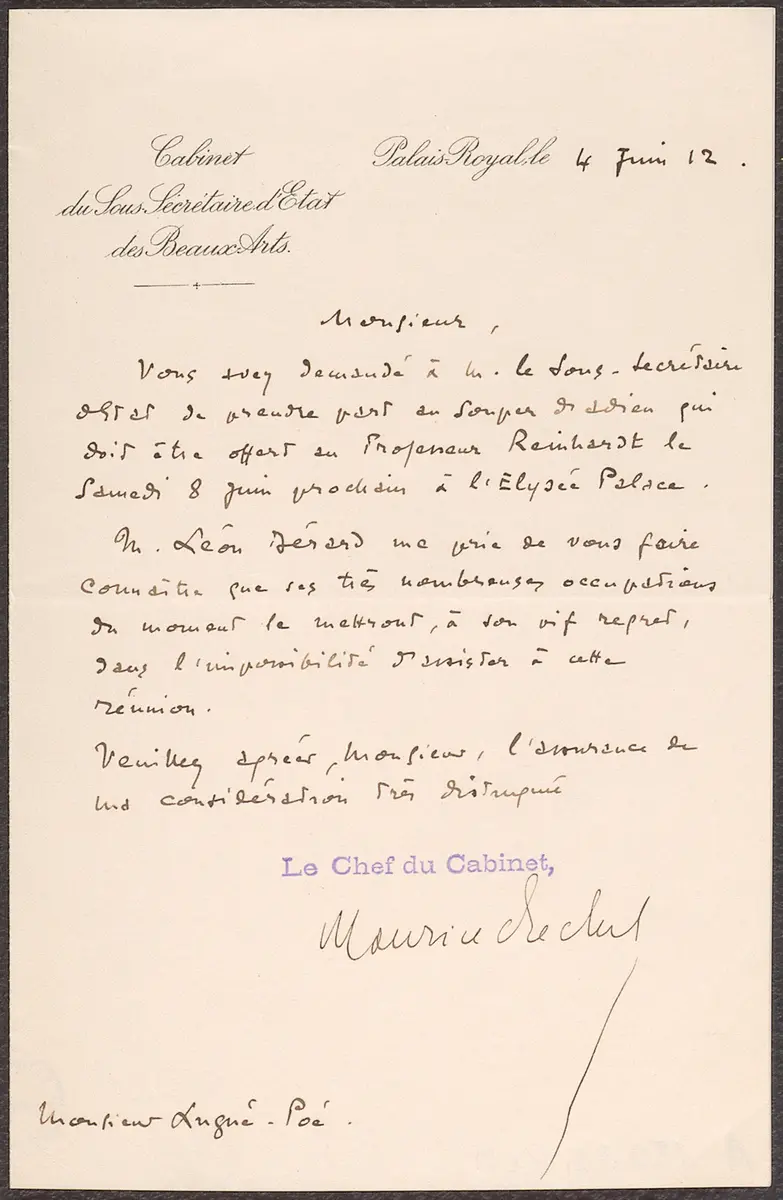 Cabinet
du Sous-Secrétaire d'Etat
des Beaux-Arts.
Palais-Royal, le 4 Juin 12.
Monsieur,
Vous avez demandé à M. le Sous-Secrétaire
d'Etat de prendre part au souper d'adieu qui
doit être offert au Professeur Reinhardt le
Samedi 8 Juin prochain à l'Elysée Palace.
M. Léon Bérard me prie de vous faire
connaître que ses très nombreuses occupations
du moment le mettront, à son vif regret,
dans l'impossibilité d'assister à cette
réunion.
Veuillez agréer, Monsieur, l'assurance de
ma considération très distinguée
Le Chef du Cabinet,
Maurice
Monsieur Lugné-Poé.